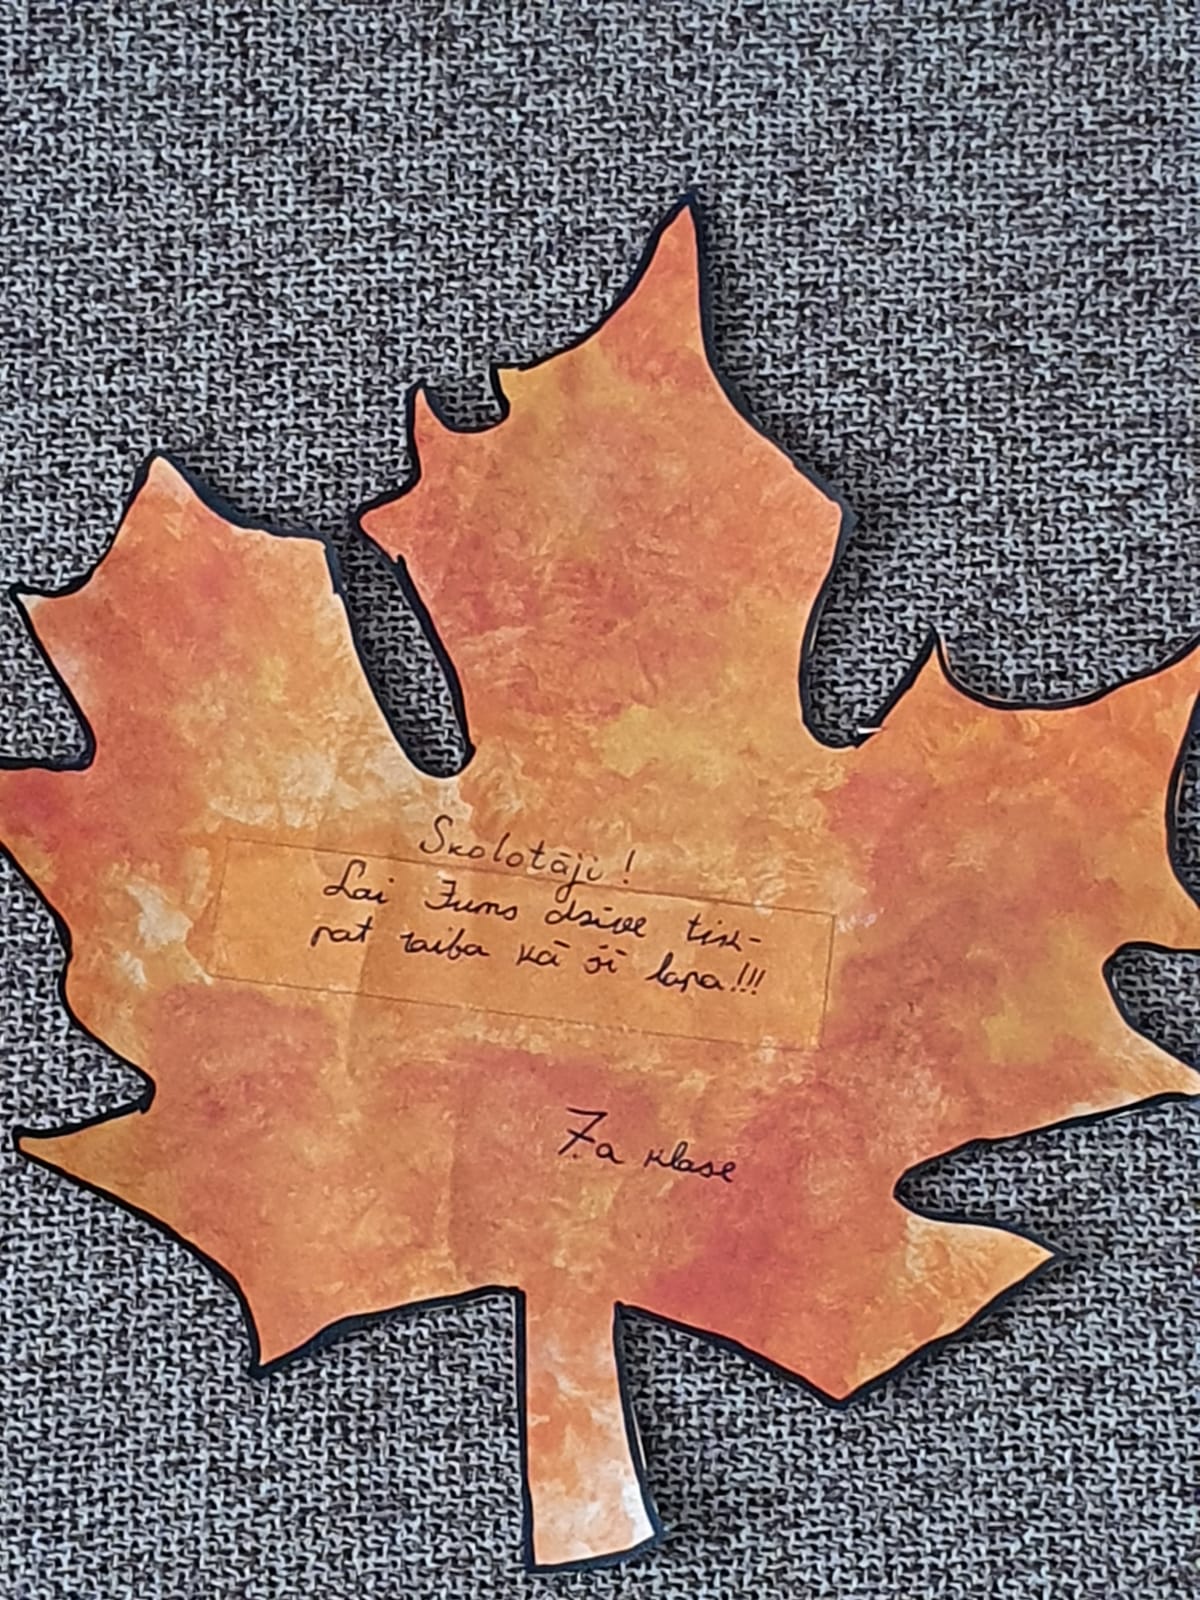 Skolotāji!
Lai Jums dzīve tik-
pat raiba kā šī lapa!!!
7.a klase